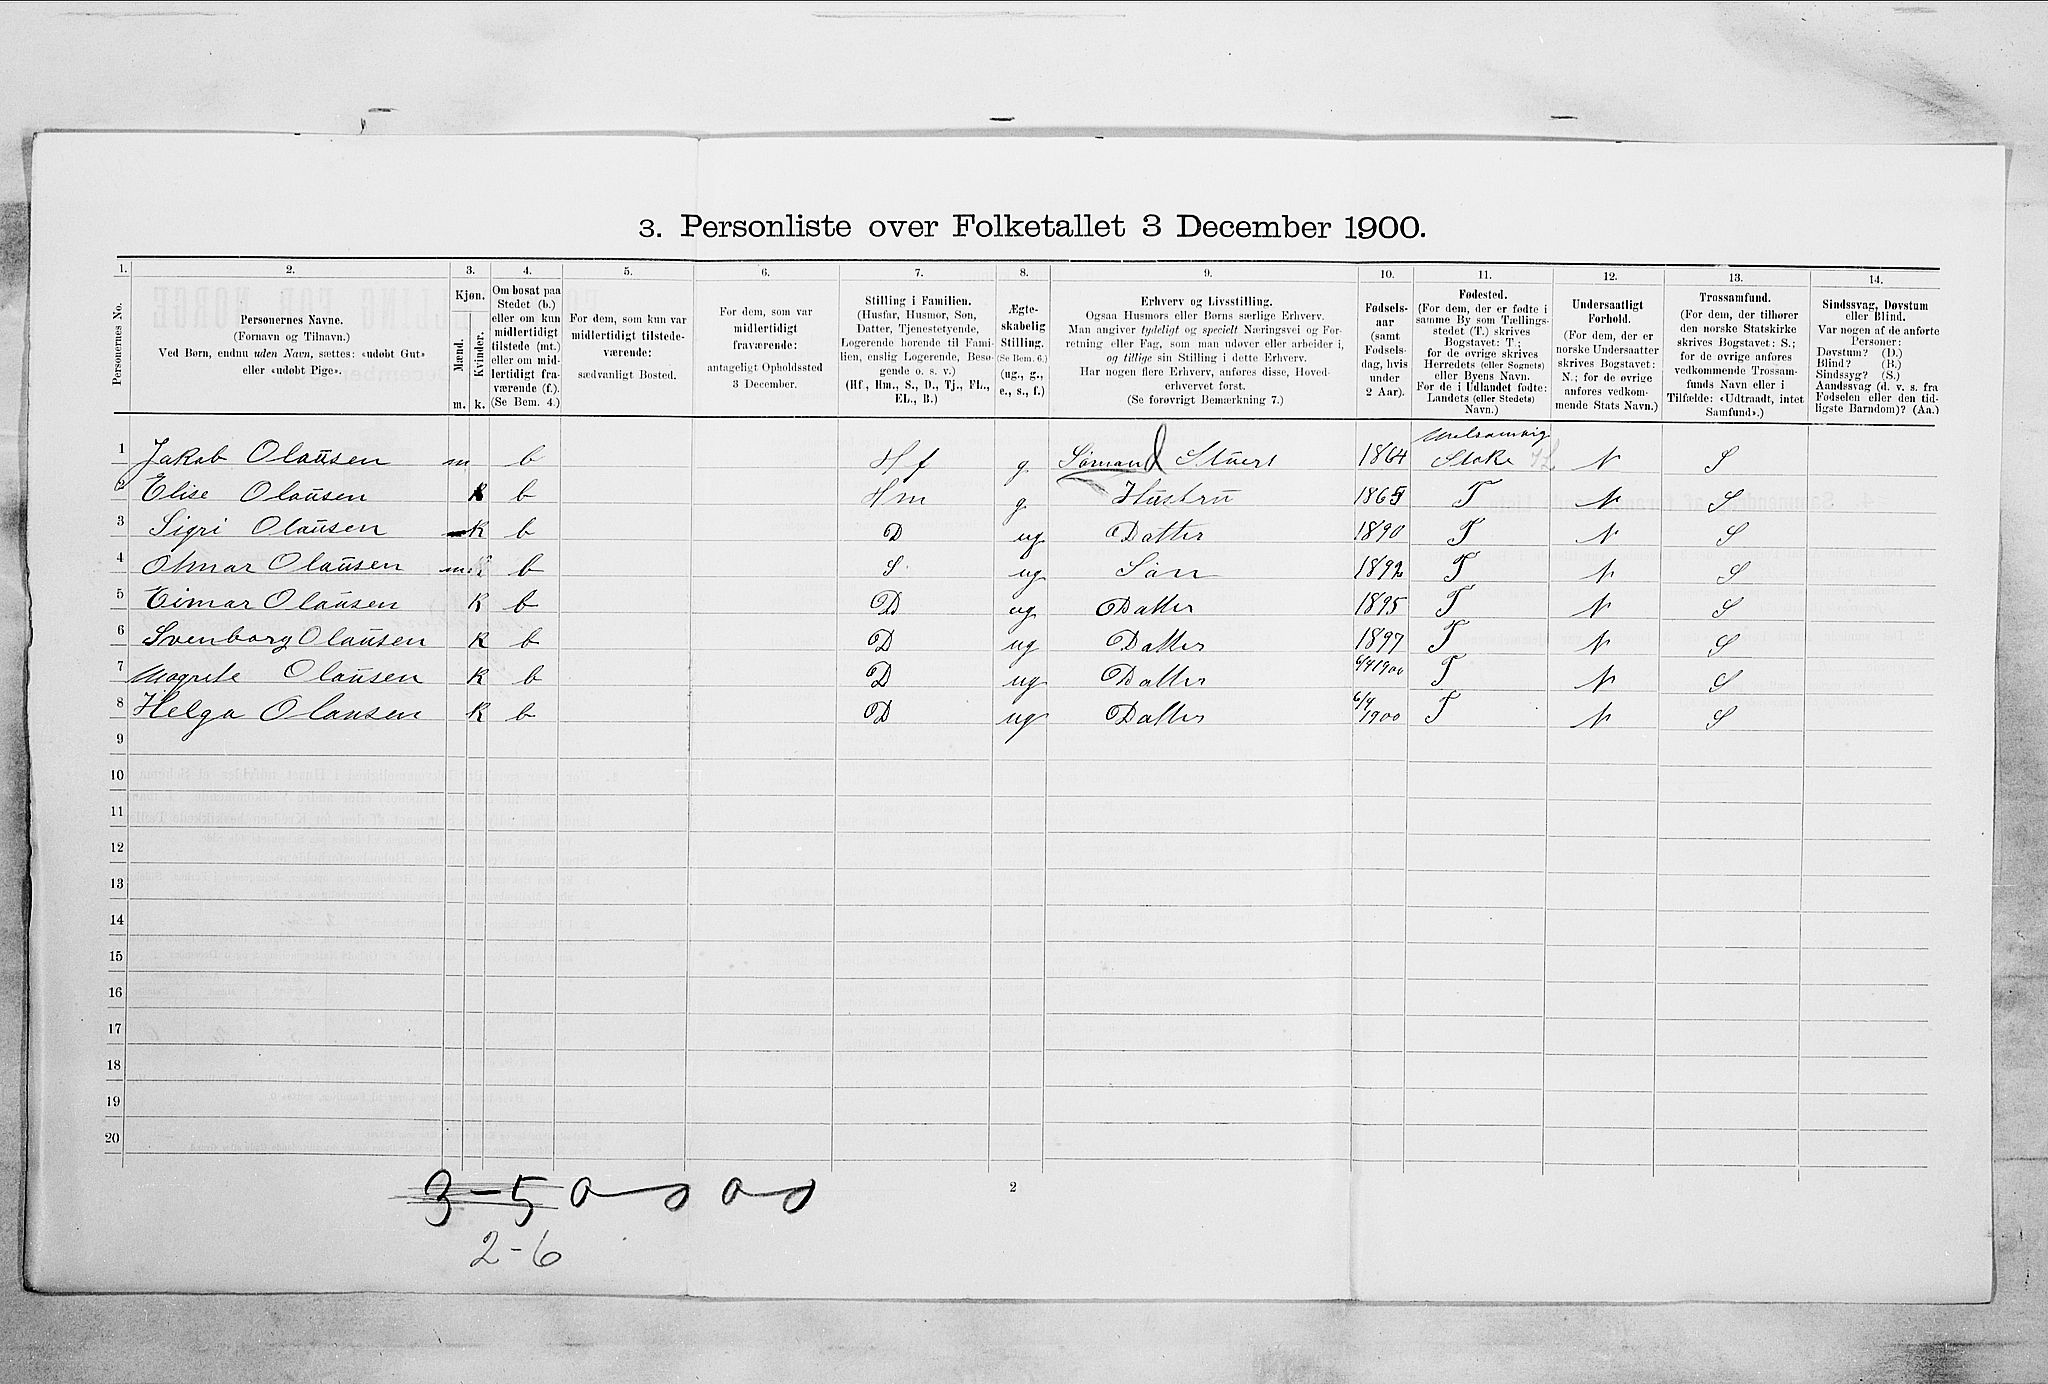 3. Personliste over Folketallet 3 December 1900.
1. 2. 3. 4. 5. 6. 7. 8. 9. 10. 11. 12. 13. 14.
Personernes No.
Personernes Navne.
(Fornavn og Tilnavn.)
Ved Børn, endnu uden Navn, sættes: «udøbt Gut»
eller «udøbt Pige».
Kjøn.
Mænd.
Kvinder.
m. k.
Om bosat paa
Stedet (b.)
eller om kun
midlertidigt
tilstede (mt.)
eller om mid-
lertidigt fra-
værende (f.).
(Se Bem. 4.)
For dem, som kun var
midlertidigt tilstede-
værende:
sædvanligt Bosted.
For dem, som var
midlertidigt
fraværende:
antageligt Opholdssted
3 December.
Stilling i Familien.
(Husfar, Husmor, Søn,
Datter, Tjenestetyende,
Logerende hørende til Fami-
lien, enslig Logerende, Besø-
gende o. s. v.)
(Hf., Hm., S., D., Tj., FL.,
EL., B.)
Ægte-
skabelig
Stilling.
(Se Bem. 6.)
(ug., g.,
e., s., f.)
Erhverv og Livsstilling.
Ogsaa Husmors eller Børns særlige Erhverv.
Man angiver tydeligt og specielt Næringsvei og For-
retning eller Fag, som man udøver eller arbeider i,
og tillige sin Stilling i dette Erhverv.
Har nogen flere Erhverv, anføres disse, Hoved-
erhvervet først.
(Se forøvrigt Bemærkning 7.)
Fødsels-
aar
(samt
Fødsels-
dag, hvis
under
2 Aar).
Fødested.
(For dem, der er fødte i
samme By som Tællings-
stedet (T.) skrives
Bogstavet: T.;
for de øvrige skrives
Herredets (eller Sognets)
eller Byens Navn.
For de i Udlandet fødte:
Landets (eller Stedets)
Navn.)
Undersaatligt
Forhold.
(For dem, der er
norske Undersaatter
skrives Bogstavet:
N.; for de øvrige
anføres vedkom-
mende Stats Navn.)
Trossamfund.
(For dem, der tilhører
den norske Statskirke
skrives Bogstavet: S.;
for de øvrige anføres
vedkommende Trossam-
funds Navn eller i
Tilfælde: «Udtraadt, intet
Samfund».)
Sindssvag, Døvstum
eller Blind.
Var nogen af de anførte
Personer:
Døvstum? (D.)
Blind? (B.)
Sindssyg? (S.)
Aandssvag (d. v. s. fra
Fødselen eller den tid-
ligste Barndom)? (Aa.)
1 Jakob Olausen m b Hf g Sømand Stuert 1864 Stoke N S
2 Elise Olausen k b Hm g Hustru 1865 T N S
3 Sigri Olausen k b D ug Datter 1890 T N S
4 Otmar Olausen m b S ug Søn 1892 T N S
5 Eimar Olausen k b D ug Datter 1895 T N S
6 Svenborg Olausen k b D ug Datter 1897 T N S
7 Magrete Olausen k b D ug Datter 6/9 1900 T N S
8 Helga Olausen k b D ug Datter 6/9 1900 T N S
9
10
11
12
13
14
15
16
17
18
19
20
3-5 0 0 0 0
2
2-6